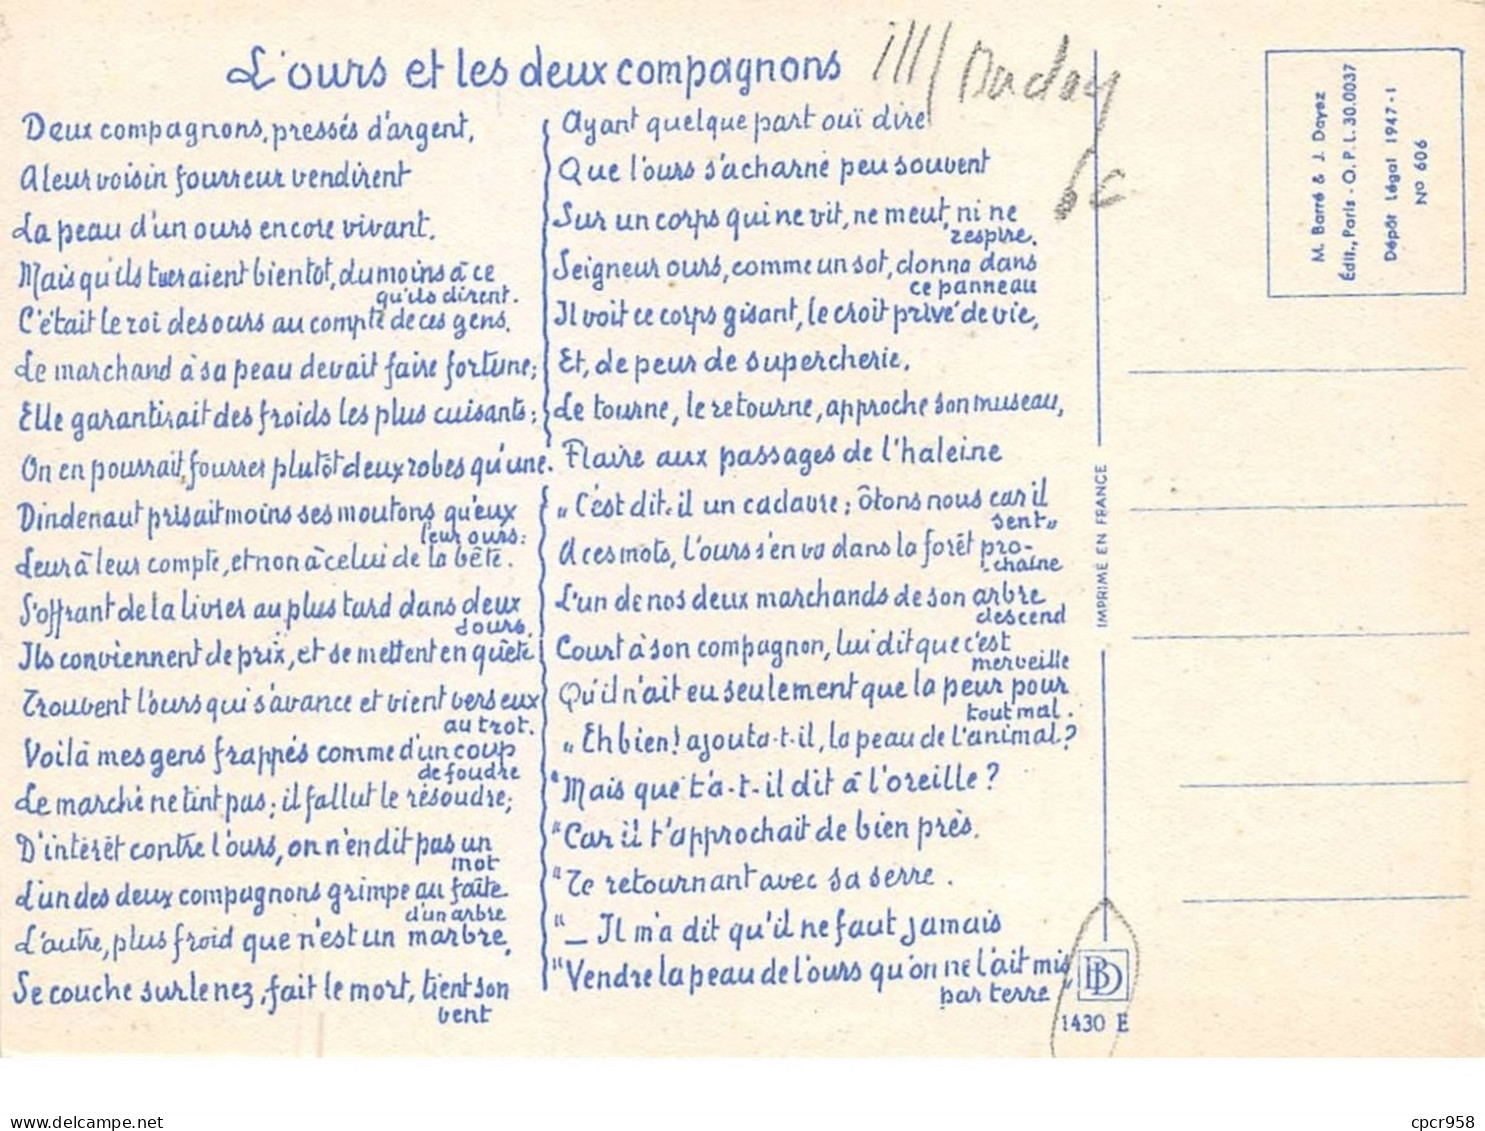 L'ours et les deux compagnons
Deux compagnons, pressés d'argent,
A leur voisin fourreur vendirent
La peau d'un ours encore vivant.
Mais qu'ils tueraient bientôt, du moins à ce
qu'ils dirent.
C'était le roi des ours au compte de ces gens.
Le marchand à sa peau devait faire fortune;
Elle garantirait des froids les plus cuisants;
On en pourrait, fourrer plutôt deux robes qu'une.
Dindenaut prisait moins ses moutons qu'eux
leur ours:
Leur à leur compte, et non à celui de la bête.
S'offrant de la livrer au plus tard dans deux
Jours,
Ils conviennent de prix, et se mettent en quête
Trouvent l'ours qui s'avance et vient vers eux
au trot.
Voilà mes gens frappés comme d'un coup
de foudre
Le marché ne tint pas; il fallut le résoudre;
D'intérêt contre l'ours, on n'en dit pas un
mot
L'un des deux compagnons grimpe au faîte
d'un arbre
L'autre, plus froid que n'est un marbre,
Se couche sur le nez, fait le mort, tient son
vent
Ayant quelque part ouï dire
Que l'ours s'acharne peu souvent
Sur un corps qui ne vit, ne meut, ni ne
respire.
Seigneur ours, comme un sot, donna dans
ce panneau
Il voit ce corps gisant, le croit privé de vie,
Et, de peur de supercherie,
Le tourne, le retourne, approche son museau,
Flaire aux passages de l'haleine
„C'est dit-il un cadavre; ôtons nous car il
sent„
A ces mots, l'ours s'en va dans la forêt pro-
chaine
L'un de nos deux marchands de son arbre
descend
Court à son compagnon, lui dit que c'est
merveille
Qu'il n'ait eu seulement que la peur pour
tout mal.
„Eh bien! ajouta-t-il, la peau de l'animal?
"Mais que t'a-t-il dit à l'oreille?
"Car il t'approchait de bien près,
"Te retournant avec sa serre.
"_ Il m'a dit qu'il ne faut jamais
"Vendre la peau de l'ours qu'on ne l'ait mis
par terre„
ill/
6€
IMPRIME EN FRANCE
M. Barré & J. Dayez
Édit., Paris - O.P.L. 30.0037
Dépôt Légal 1947-1
N° 606
BD
1430 E
delcampe.net
cpcr958